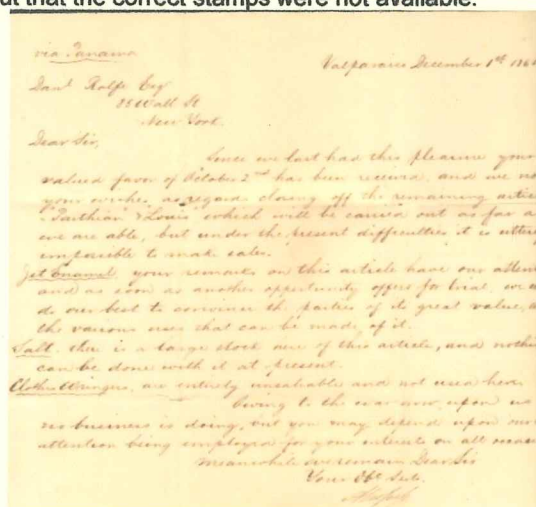 ut that the correct stamps were not available.
via Panama
Valparaiso December 1st 186
Danl Rolfe Esqr
Wall St
New York.
Dear Sir,
Since we last had this pleasure your
valued favor of October 2nd has been received, and we no
your wishes as regards closing off the remaining artic
Parthian & Louis which will be carried out as far a
we are able, but under the present difficulties it is utter
impossible to make sales.
Jet Enamel, your remarks on this article have our attent
and as soon as another opportunity offers for trial, we
do our best to convince the parties of its great value, a
the various uses that can be made of it.
Salt. there is a large stock now of this article, and nothi
can be done with it at present.
Clothes Wringers, are entirely unsaleable and not used here.
Owing to the war now upon us
no business is doing, but you may depend upon our
attention being employed for your interests on all occasi
Meanwhile we remain Dear Sir
Your Obt Svts.